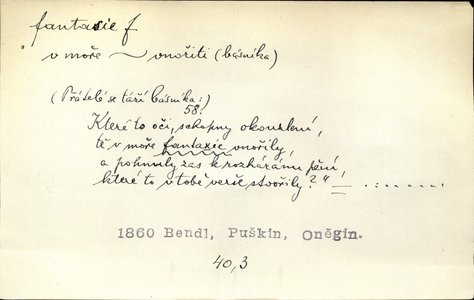 fantasie f
v moře ~ vnořiti (básníka)
(Přátelé se táží básníka:)
58.
Které to oči, schopny okouzlení,
tě v moře fantasie vnořily,
a pohnuly zas k rozháránu pění,
které to v tobě verše stvořily?"
1860 Bendl, Puškin, Oněgin.
40,3